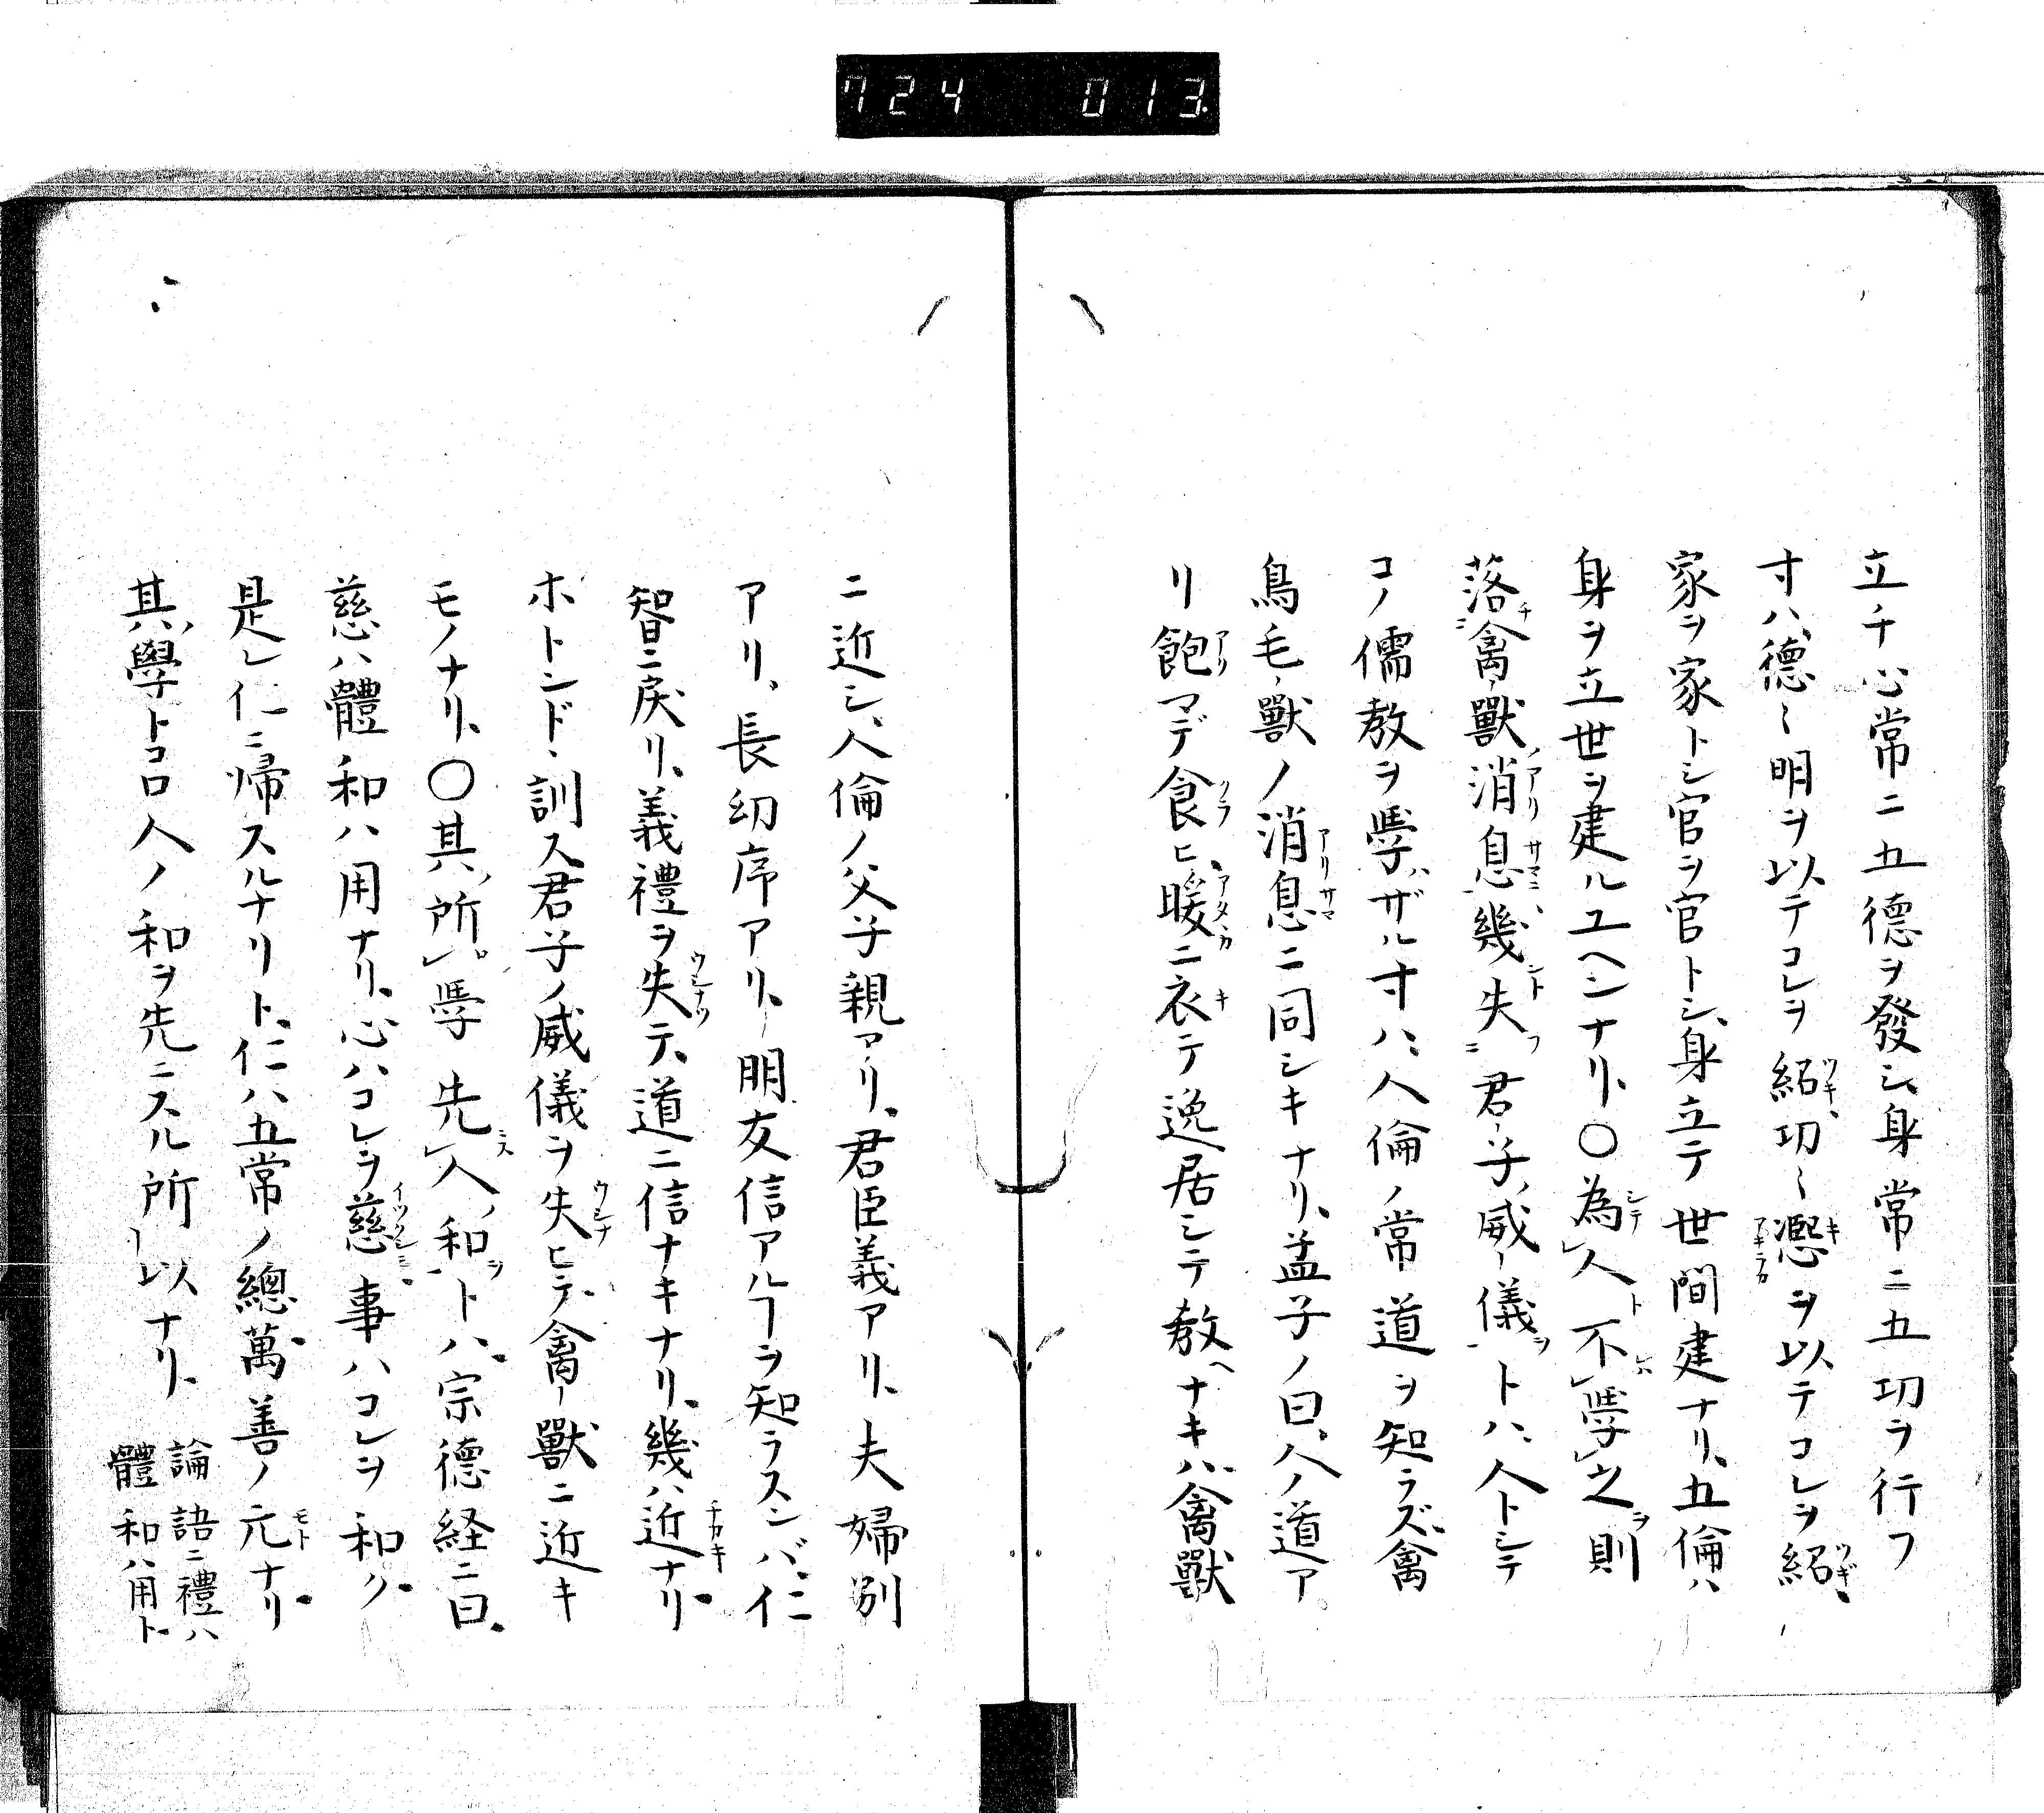 724 013
立チ心常ニ五德ヲ發シ、身常ニ五功ヲ行フ
寸ハ、德〻明ヲ以テコレヲ紹功〻凞ヲ以テコレヲ紹〻
家ヲ家トシ官ヲ官トシ、身立テ世間建ナリ、五倫ハ
身ヲ立世ヲ建ルユヘンナリ、〇為人不學之則
落禽獸消息幾失君子威儀トハ、人トシテ
コノ儒教ヲ學ハザル寸ハ、人倫ノ常道ヲ知ラズ、禽
鳥毛獸ノ消息ニ同シキナリ、孟子ノ曰、人ノ道ア
リ飽マデ食ヒ、暖ニ衣テ逸居シテ教ヘナキハ、禽獸
ニ近シ、人倫ノ父子親アリ、君臣義アリ、夫婦別
アリ、長幼序アリ、朋友信アルヿヲ知ラスンバ、仁
智ニ戻リ、義禮ヲ失テ、道ニ信ナキナリ、幾ハ近ナリ
ホトンド、訓ス君子ノ威儀ヲ失ヒテ、禽獸ニ近キ
モノナリ、〇其所學先人和トハ、宗德経ニ曰、
慈ハ體和ハ用ナリ、心ハコレヲ慈事ハコレヲ和ク
是レ仁ニ帰スルナリト、仁ハ五常ノ總萬善ノ元ナリ
其學トコロ人ノ和ヲ先ニスル所以ナリ、
論語ニ禮ハ
體和ハ用ト